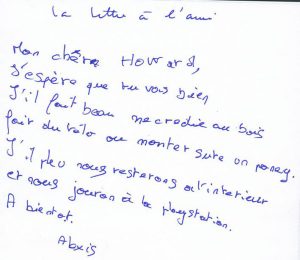 La lettre à l'ami
Mon chère Howard,
J'espère que tu vas bien
S'il fait beau mecredie au bois
fair du vélo ou monter sure un poney.
S'il pleu nous resterons a l'interieur
et nous jouron à la playstation.
A bientot.
Alexis